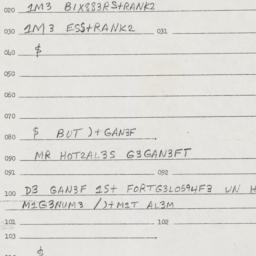 020 1M3 BIX883RS+RANK2
030 1M3 ESS+RANK2 031
040 $
050
060
070
080 $ BUT )+ GAN3F
090 MR HOT2AL3S G3GAN3FT
091 092
100 D3 GAN3F 1S+ FORTG3LOS94F3 UN H
M1G3NUM3 /)+M1T AL3M
101 102
103
$